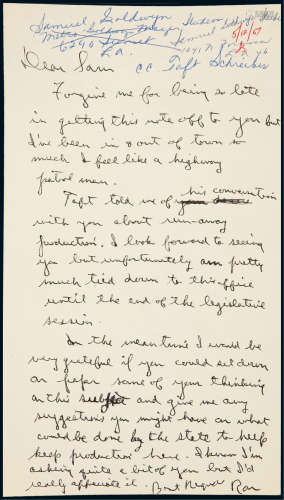 Samuel Goldwyn
5/12/67
6240 Sunset
L.A.
cc Taft Schreiber
Dear Sam
Forgive me for being so late
in getting this note off to you but
I've been in & out of town so
much I feel like a highway
patrol man.
Taft told me of his conversation
with you about run-away
production. I look forward to seeing
you but unfortunately am pretty
much tied down to this office
until the end of the legislative
session.
In the meantime I would be
very grateful if you could set down
on paper some of your thinking
on this subject and give me any
suggestions you might have on what
could be done by the state to help
keep production here. I know I'm
asking quite a bit of you but I'd
really appreciate it. Best Regards Ron